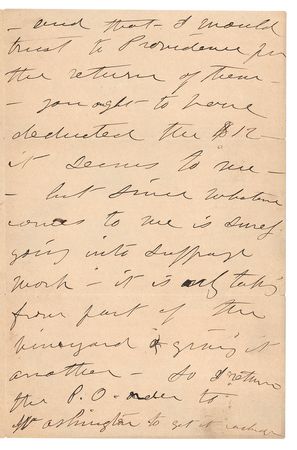 - and that I would
trust to Providence for
the return of them -
- you ought to have
deducted the $12 -
it seems to me -
- but since whatever
comes to me is surely
going into suffrage
work - it is only taking
from part of the
vineyard & giving it
another - So I return
the P.O. order to
Washington to get it